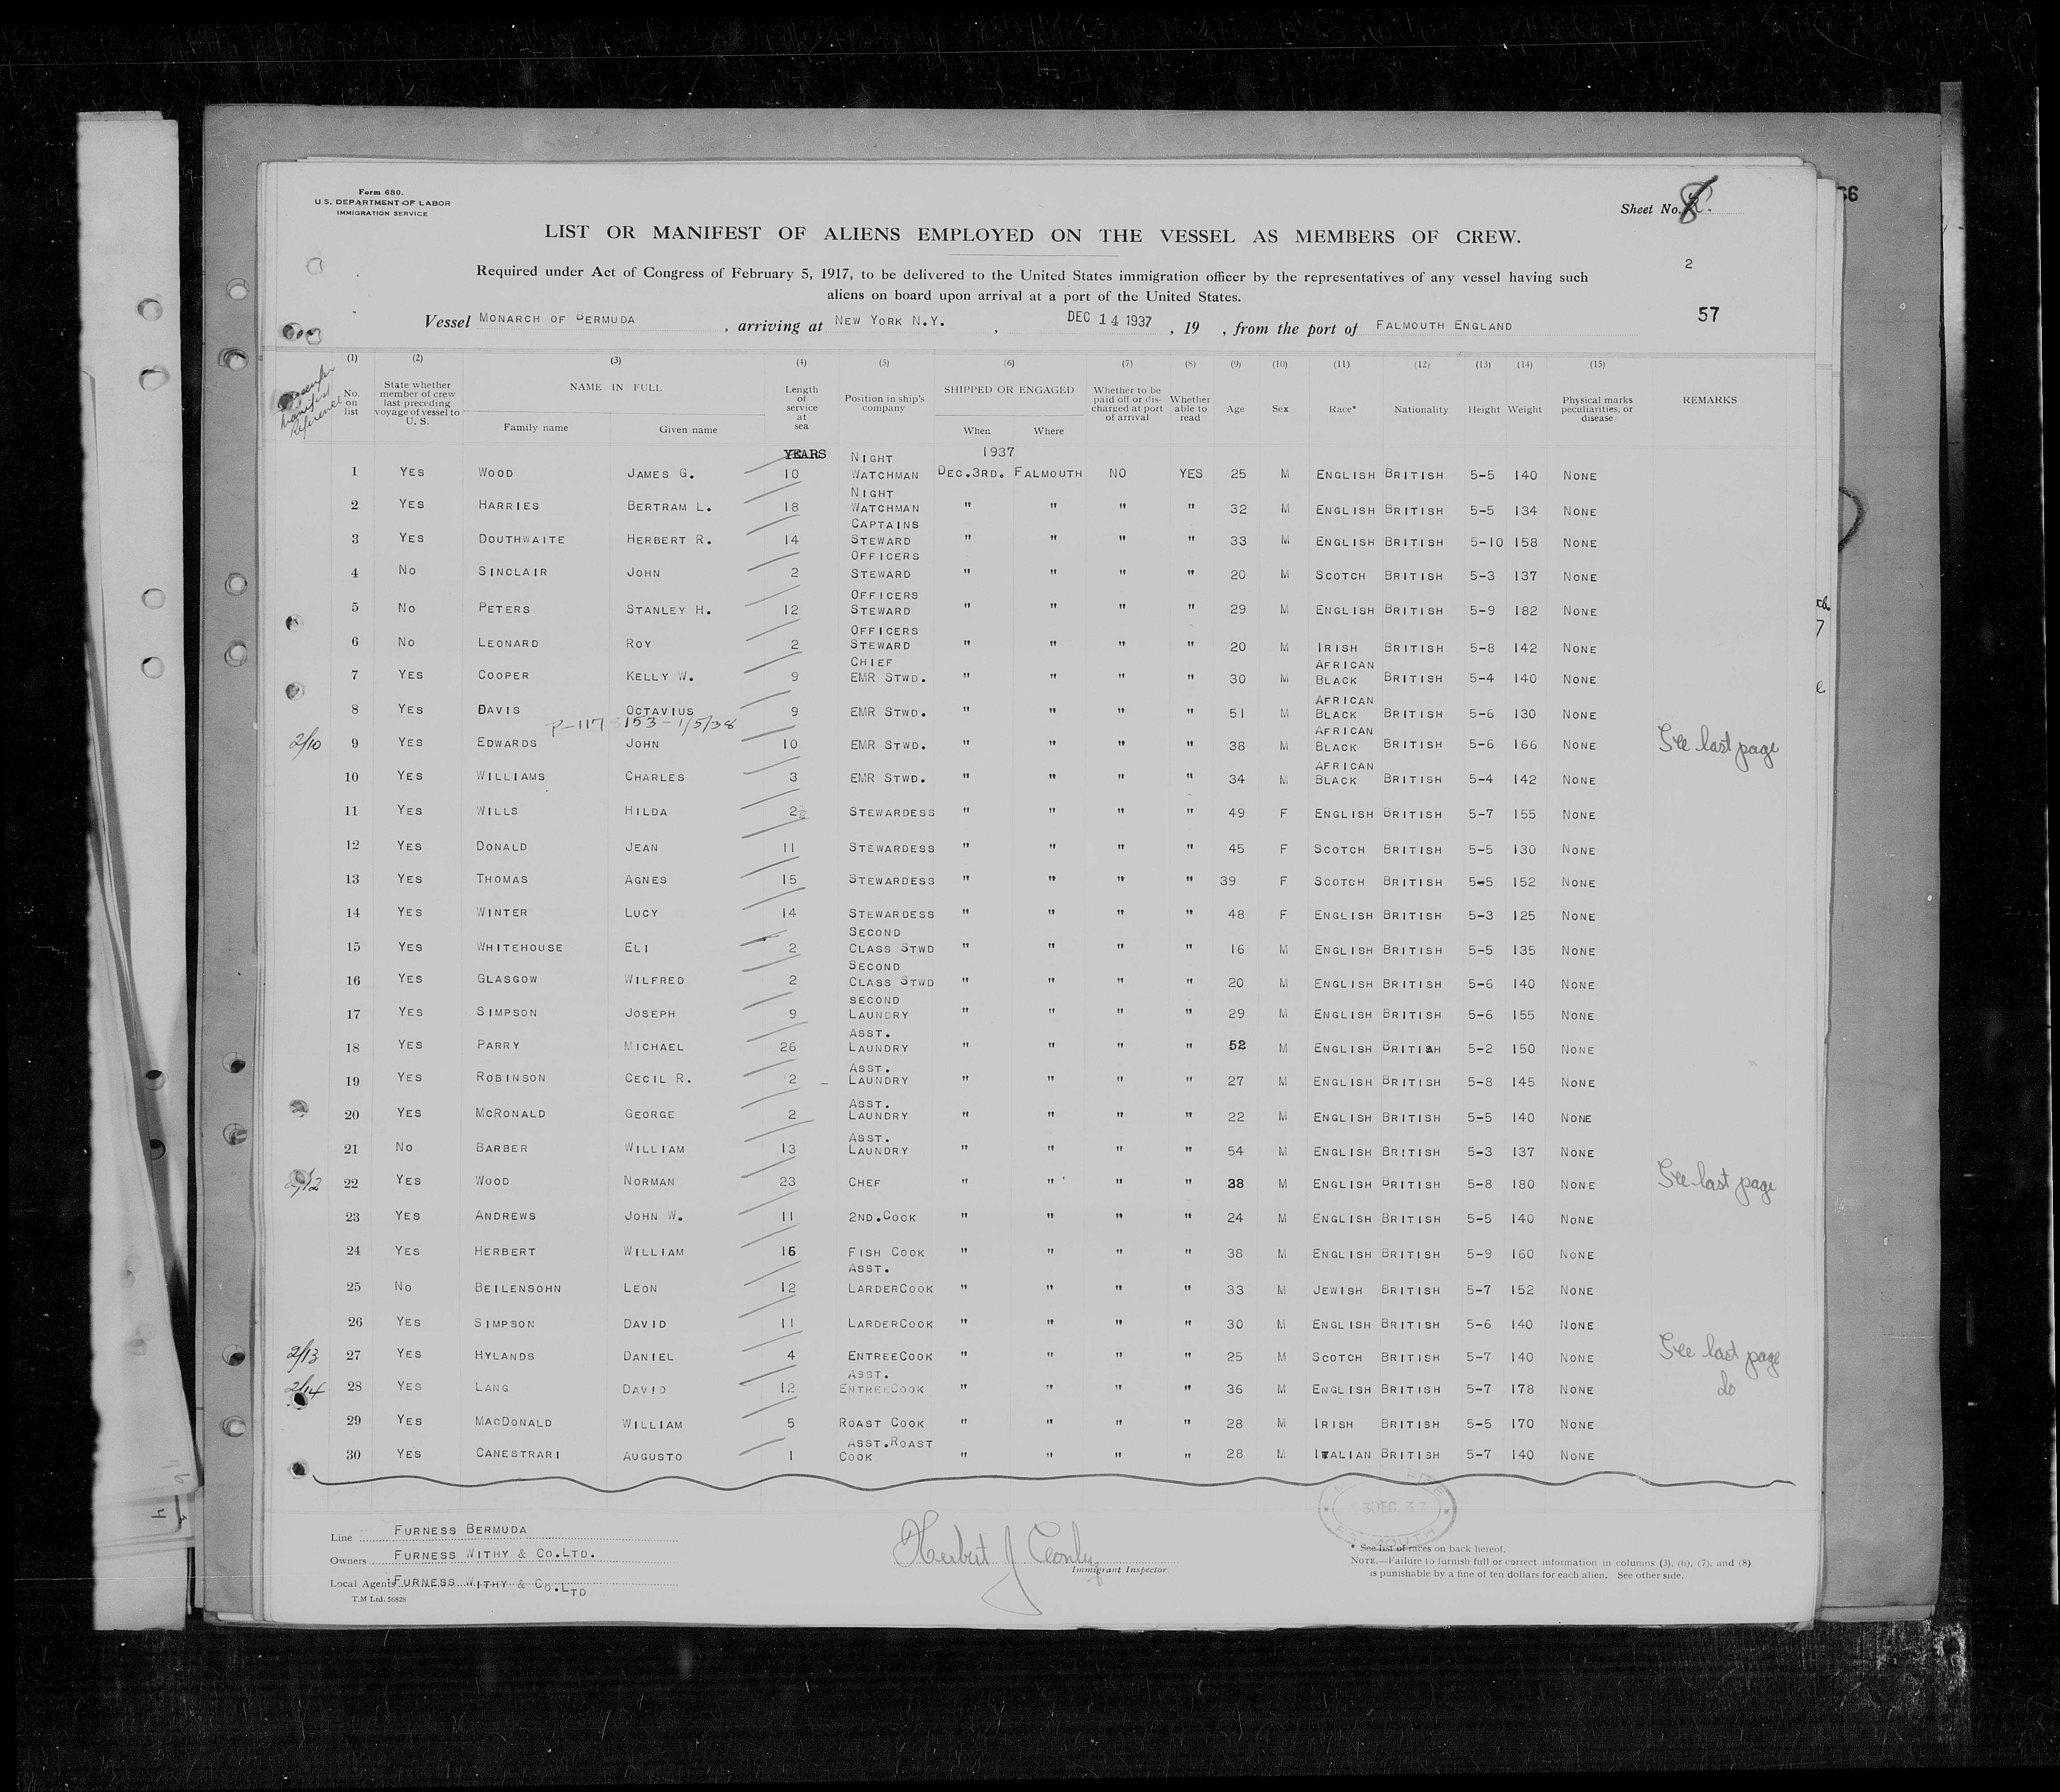 Form 680.
U. S. DEPARTMENT OF LABOR
IMMIGRATION SERVICE
Sheet No.
LIST OR MANIFEST OF ALIENS EMPLOYED ON THE VESSEL AS MEMBERS OF CREW.
2
Required under Act of Congress of February 5, 1917, to be delivered to the United States immigration officer by the representatives of any vessel having such
aliens on board upon arrival at a port of the United States.
57
Vessel MONARCH OF BERMUDA , arriving at NEW YORK N.Y. , DEC 14 1937 , 19 , from the port of FALMOUTH ENGLAND
(1) (2) (3) (4) (5) (6) (7) (8) (9) (10) (11) (12) (13) (14) (15)
Passenger manifest Reference
No. on list State whether member of crew last preceding voyage of vessel to U. S. NAME IN FULL Family name Given name Length of service at sea Position in ship's company SHIPPED OR ENGAGED When Where Whether to be paid off or discharged at port of arrival Whether able to read Age Sex Race* Nationality Height Weight Physical marks peculiarities, or disease REMARKS
YEARS 1937
1 YES WOOD JAMES G. 10 NIGHT WATCHMAN DEC.3RD. FALMOUTH NO YES 25 M ENGLISH BRITISH 5-5 140 NONE
2 YES HARRIES BERTRAM L. 18 NIGHT WATCHMAN " " " " 32 M ENGLISH BRITISH 5-5 134 NONE
3 YES DOUTHWAITE HERBERT R. 14 CAPTAINS STEWARD " " " " 33 M ENGLISH BRITISH 5-10 158 NONE
4 NO SINCLAIR JOHN 2 OFFICERS STEWARD " " " " 20 M SCOTCH BRITISH 5-3 137 NONE
5 NO PETERS STANLEY H. 12 OFFICERS STEWARD " " " " 29 M ENGLISH BRITISH 5-9 182 NONE
6 NO LEONARD ROY 2 OFFICERS STEWARD " " " " 20 M IRISH BRITISH 5-8 142 NONE
7 YES COOPER KELLY W. 9 CHIEF EMR STWD. " " " " 30 M AFRICAN BLACK BRITISH 5-4 140 NONE
8 YES DAVIS OCTAVIUS 9 EMR STWD. " " " " 51 M AFRICAN BLACK BRITISH 5-6 130 NONE
P-117 3153-1/5/38
2/10 9 YES EDWARDS JOHN 10 EMR STWD. " " " " 38 M AFRICAN BLACK BRITISH 5-6 166 NONE See last page
10 YES WILLIAMS CHARLES 3 EMR STWD. " " " " 34 M AFRICAN BLACK BRITISH 5-4 142 NONE
11 YES WILLS HILDA 2½ STEWARDESS " " " " 49 F ENGLISH BRITISH 5-7 155 NONE
12 YES DONALD JEAN 11 STEWARDESS " " " " 45 F SCOTCH BRITISH 5-5 130 NONE
13 YES THOMAS AGNES 15 STEWARDESS " " " " 39 F SCOTCH BRITISH 5-5 152 NONE
14 YES WINTER LUCY 14 STEWARDESS " " " " 48 F ENGLISH BRITISH 5-3 125 NONE
15 YES WHITEHOUSE ELI 2 SECOND CLASS STWD " " " " 16 M ENGLISH BRITISH 5-5 135 NONE
16 YES GLASGOW WILFRED 2 SECOND CLASS STWD " " " " 20 M ENGLISH BRITISH 5-6 140 NONE
17 YES SIMPSON JOSEPH 9 SECOND LAUNDRY " " " " 29 M ENGLISH BRITISH 5-6 155 NONE
18 YES PARRY MICHAEL 26 ASST. LAUNDRY " " " " 52 M ENGLISH BRITISH 5-2 150 NONE
19 YES ROBINSON CECIL R. 2 ASST. LAUNDRY " " " " 27 M ENGLISH BRITISH 5-8 145 NONE
20 YES MCRONALD GEORGE 2 ASST. LAUNDRY " " " " 22 M ENGLISH BRITISH 5-5 140 NONE
21 NO BARBER WILLIAM 13 ASST. LAUNDRY " " " " 54 M ENGLISH BRITISH 5-3 137 NONE
2/12 22 YES WOOD NORMAN 23 CHEF " " " " 38 M ENGLISH BRITISH 5-8 180 NONE See last page
23 YES ANDREWS JOHN W. 11 2ND.COOK " " " " 24 M ENGLISH BRITISH 5-5 140 NONE
24 YES HERBERT WILLIAM 16 FISH COOK " " " " 38 M ENGLISH BRITISH 5-9 160 NONE
25 NO BEILENSOHN LEON 12 ASST. LARDERCOOK " " " " 33 M JEWISH BRITISH 5-7 152 NONE
26 YES SIMPSON DAVID 11 LARDERCOOK " " " " 30 M ENGLISH BRITISH 5-6 140 NONE
2/13 27 YES HYLANDS DANIEL 4 ENTREECOOK " " " " 25 M SCOTCH BRITISH 5-7 140 NONE See last page
2/14 28 YES LANG DAVID 12 ASST. ENTREECOOK " " " " 36 M ENGLISH BRITISH 5-7 178 NONE do
29 YES MACDONALD WILLIAM 5 ROAST COOK " " " " 28 M IRISH BRITISH 5-5 170 NONE
30 YES CANESTRARI AUGUSTO 1 ASST.ROAST COOK " " " " 28 M ITALIAN BRITISH 5-7 140 NONE
3 DEC. 37
Line FURNESS BERMUDA
Owners FURNESS WITHY & CO.LTD.
Local Agents FURNESS WITHY & CO.LTD
T.M Ltd. 56828
Herbert J
Immigrant Inspector.
* See list of races on back hereof.
NOTE.—Failure to furnish full or correct information in columns (3), (6), (7), and (8)
is punishable by a fine of ten dollars for each alien. See other side.